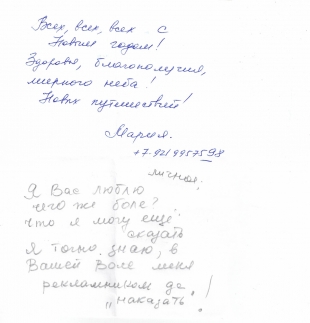 Всех, всех, всех с
Новым годом!
Здоровья, благополучия,
мирного неба!
Новых путешествий!
Мария.
+7-921 9957598
личная.
Я Вас люблю
чего же боле?
Что я могу еще
сказать
Я точно знаю, в
Вашей Воле меня
рекламником да,
"наказать!